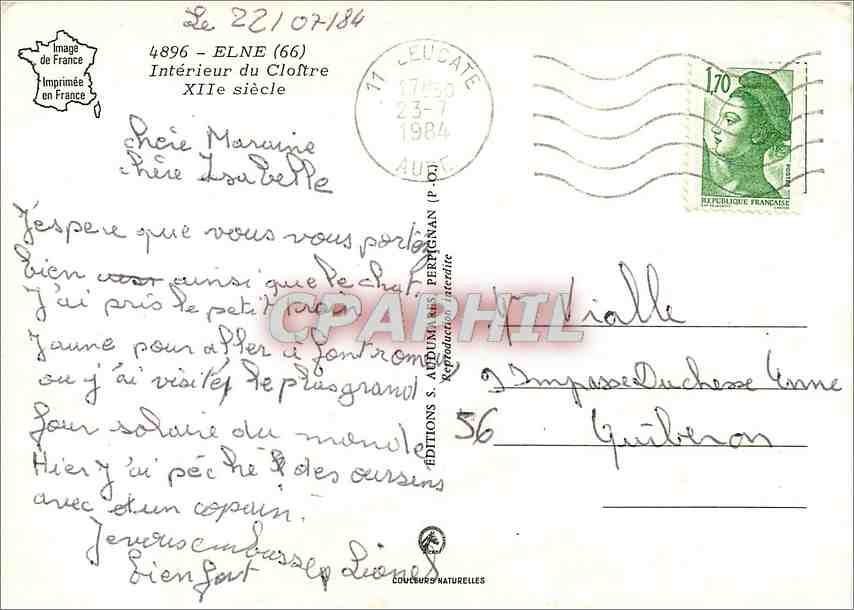 Le 22/07/84
Image
de France
Imprimée
en France
4896 – ELNE (66)
Intérieur du Cloître
XIIe siècle
11 LEUCATE
17H30
23-7
1984
AUDE
1,70
POSTES
REPUBLIQUE FRANÇAISE
chère Maraine
chère Isabelle
J'espere que vous vous portez
bien ainsi que le chat.
J'ai pris le petit train
Jaune pour aller à font romeu,
ou j'ai visité le plus grand
four solaire du monde
Hier j'ai péché des oursins
avec d'un copain.
Je vous embrasse
bien fort Lionel
EDITIONS S. AUDUMARES, PERPIGNAN (P.-O.)
Reproduction interdite
CPAPHIL
Vialle
9 Impasse Duchesse Anne
56 Quiberon
COULEURS NATURELLES